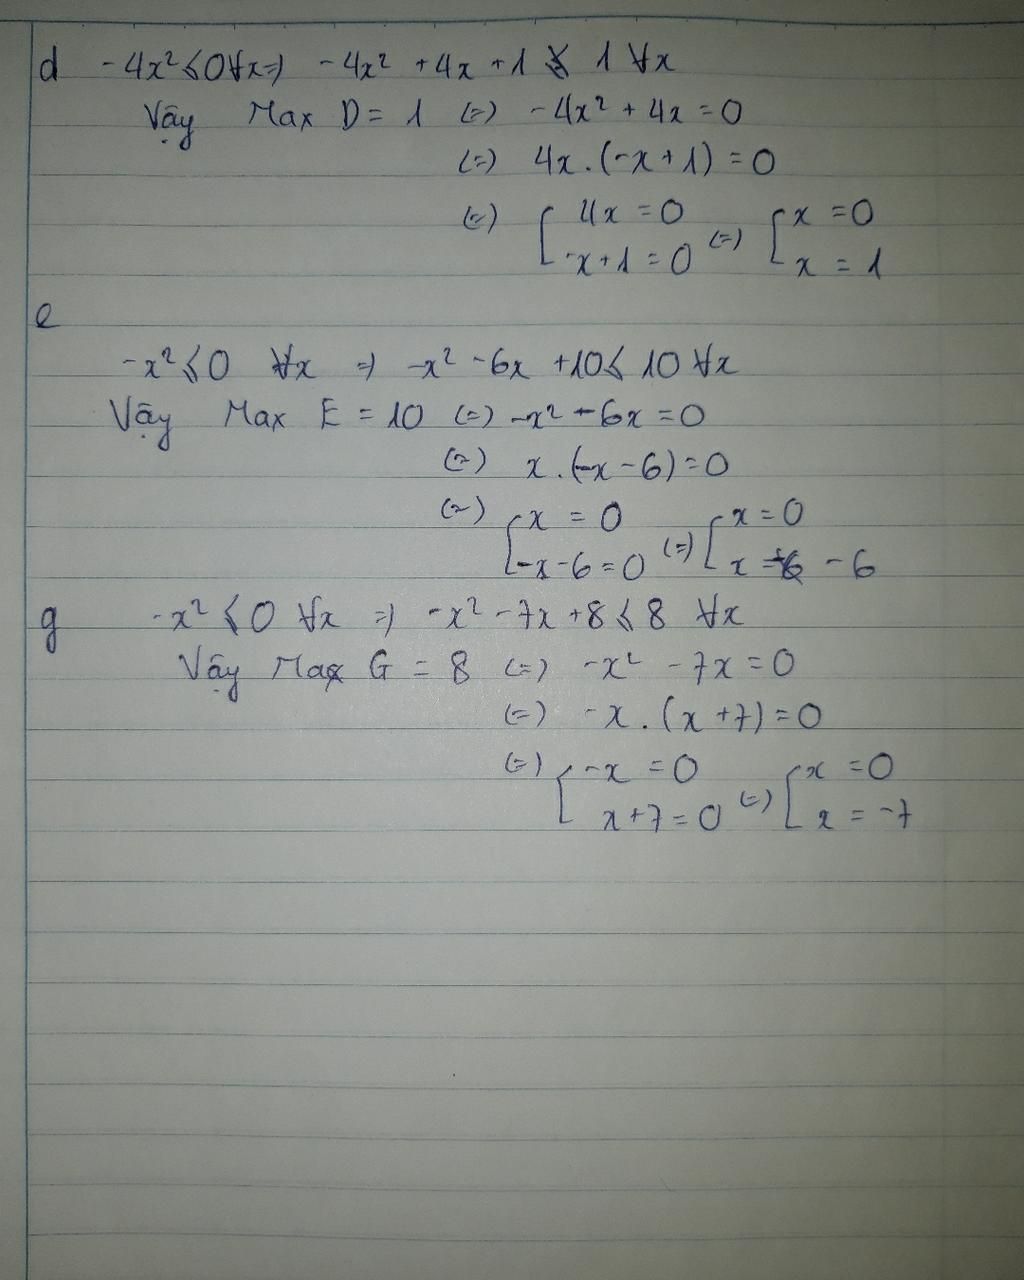 d -4x² ≤ 0 ∀x => -4x² + 4x + 1 ≤ 1 ∀x
Vậy Max D = 1 (=) -4x² + 4x = 0
(=) 4x.(-x+1) = 0
(=) [ 4x = 0 (=) [ x = 0
-x+1 = 0 x = 1
e
-x² ≤ 0 ∀x => -x² - 6x + 10 ≤ 10 ∀x
Vậy Max E = 10 (=) -x² - 6x = 0
(=) x.(-x-6) = 0
(=) [ x = 0 (=) [ x = 0
-x-6 = 0 x = -6
g -x² ≤ 0 ∀x => -x² - 7x + 8 ≤ 8 ∀x
Vậy Max G = 8 (=) -x² - 7x = 0
(=) -x.(x+7) = 0
(=) [ -x = 0 (=) [ x = 0
x+7 = 0 x = -7